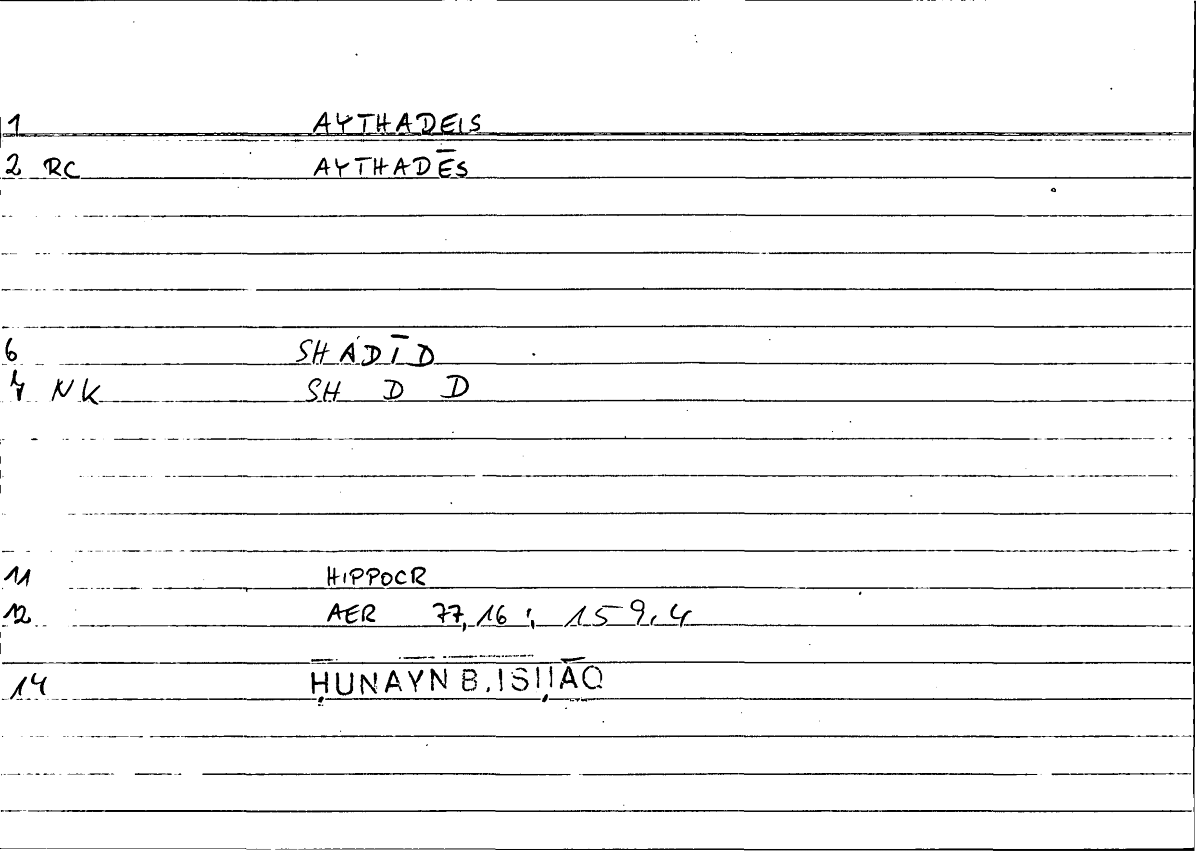 1 AYTHADEIS
2 RC AYTHADĒS
6 SHADĪD
7 NK SH D D
11 HIPPOCR
12 AER 77,16 ; 159,4
14 ḤUNAYN B. ISḤĀQ